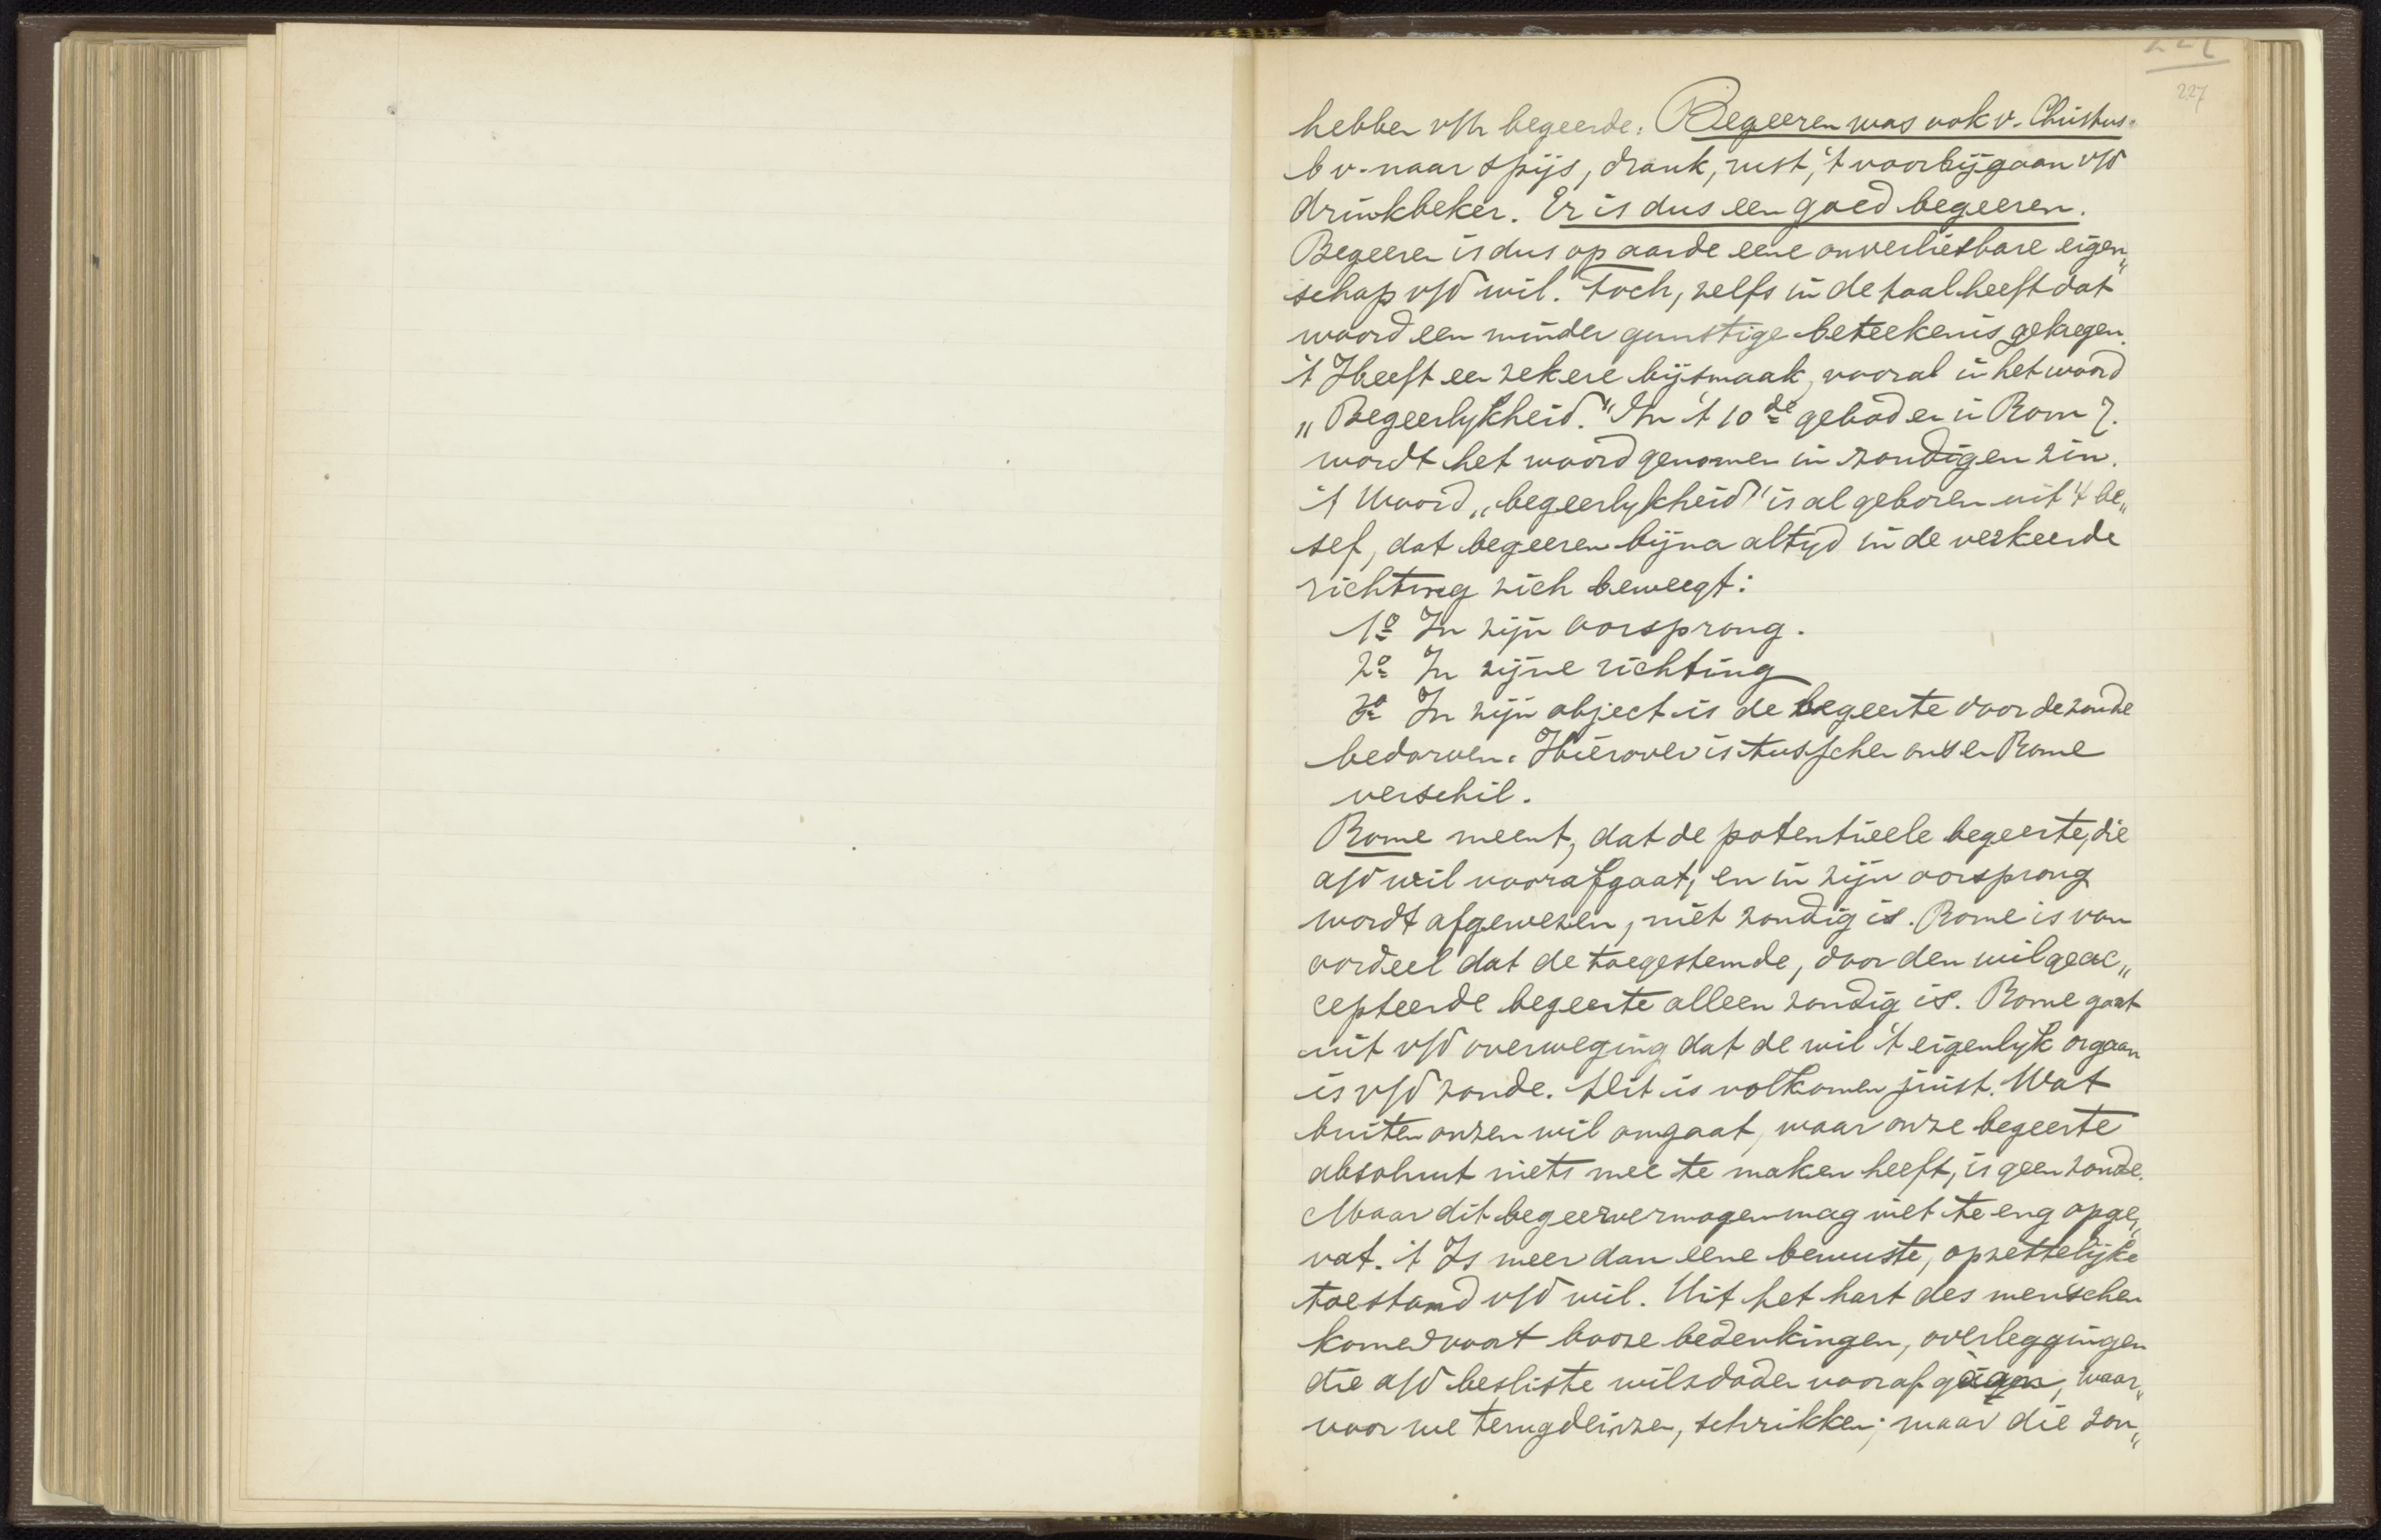 227
hebben v/h begeerde. Begeeren was ook v. Christus.
b v. naar spijs, drank, rust, 't voorbijgaan v/d
drinkbeker. Er is dus een goed begeeren.
Begeeren is dus op aarde eene onverliesbare eigen„
schap v/d wil. Toch, zelfs in de taal heeft dat
woord een minder gunstige beteekenis gekregen.
't Heeft een zekere bijsmaak, vooral in het woord
„Begeerlykheid." In 't 10de gebod en in Rom 7.
wordt het woord genomen in zondigen zin.
't Woord „begeerlykheid" is al geboren uit 't be„
sef, dat begeeren bijna altyd in de verkeerde
richting zich beweegt:
1o In zijn oorsprong.
2o In zijne richting
3o In zijn object is de begeerte door de zonde
bedorven. Hierover is tusschen ons en Rome
verschil.
Rome meent, dat de potentieele begeerte, die
a/d wil voorafgaat, en in zijn oorsprong
wordt afgewezen, niet zondig is. Rome is van
oordeel dat de toegestemde, door den wil geac„
cepteerde begeerte alleen zondig is. Rome gaat
uit v/d overweging dat de wil 't eigenlyk orgaan
is v/d zonde. Dit is volkomen juist. Wat
buiten onzen wil omgaat, waar onze begeerte
absoluut niets mee te maken heeft, is geen zonde.
Maar dit begeervermogen mag niet te eng opge„
vat. 't Is meer dan eene bewuste, opzettelijke
toestand v/d wil. Uit het hart des menschen
komen voort booze bedenkingen, overleggingen
die a/d besliste wilsdaden vooraf gaan, waar„
voor we terugdeinzen, schrikken; maar die zon„